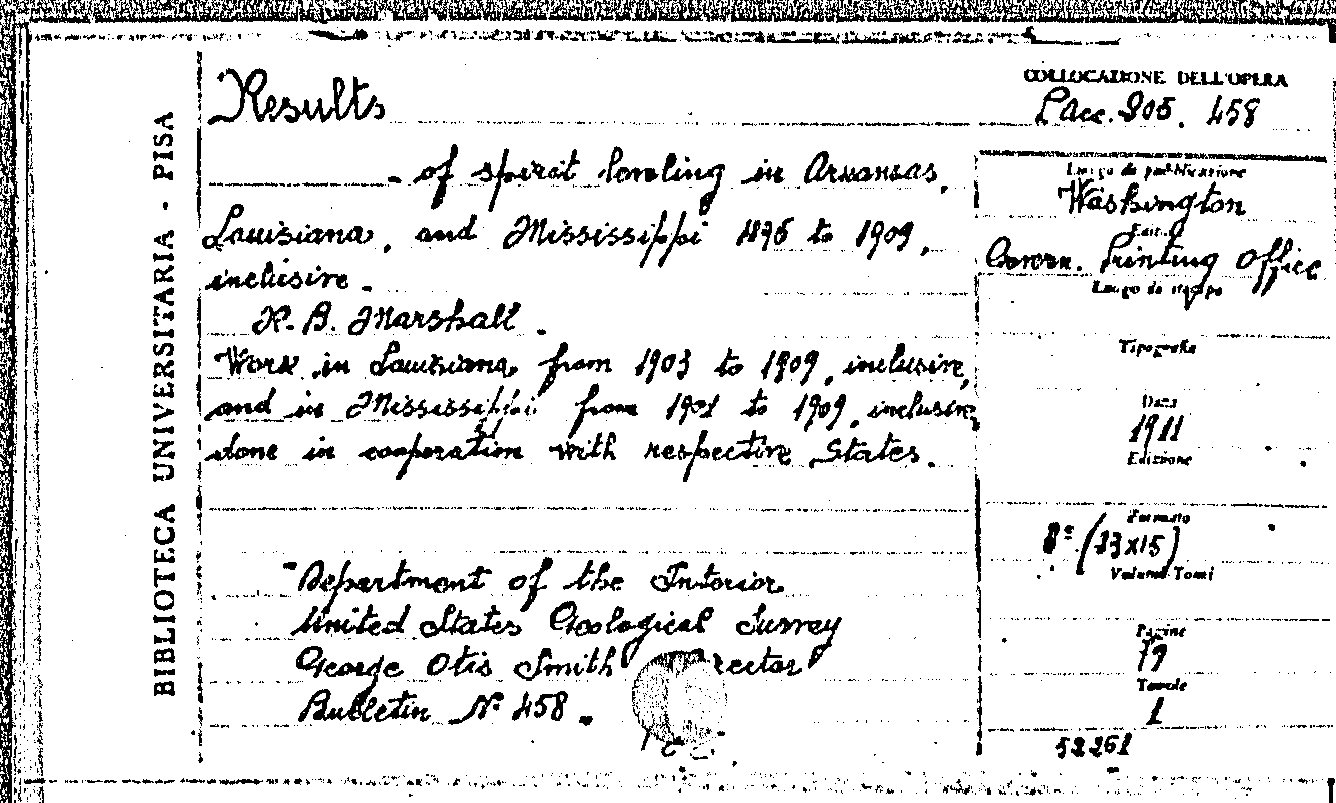 BIBLIOTECA UNIVERSITARIA - PISA
Results
- of spirit leveling in Arkansas,
Louisiana, and Mississippi 1896 to 1909,
inclusive.
R. B. Marshall.
Work in Louisiana from 1903 to 1909, inclusive,
and in Mississippi from 1901 to 1909, inclusive,
done in cooperation with respective States.
"Department of the Interior
United States Geological Survey
George Otis Smith Director
Bulletin Nº 458.
COLLOCAZIONE DELL'OPERA
805. 458
Luogo di pubblicazione
Washington
Edit.
Govern. Printing Office
Luogo di stampa
Tipografia
Data
1911
Edizione
Formato
8º (23x15)
Volumi-Tomi
Pagine
79
Tavole
1
52261